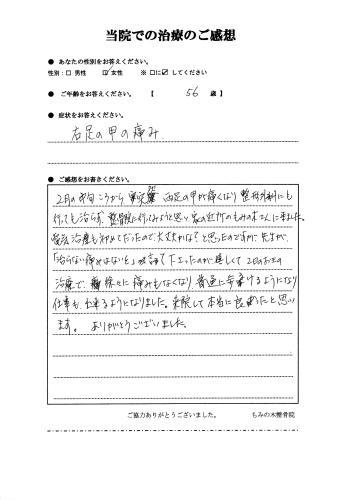 当院での治療のご感想
● あなたの性別をお答えください。
性別：□ 男性 ☑ 女性 ※ □に☑ してください
● ご年齢をお答えください。 【 56 歳 】
● 症状をお答えください。
右足の甲の痛み
● ご感想をお書きください。
2月の中旬ころから 両足の甲が痛くなり 整形外科にも
行っても治らず、整骨院に行ってみようと思い 家の近所のもみの木さんに来ました。
治療も初めてだったので大丈夫かな?と思ったのですが、先生が、
「治らない痛みはないと」 下さったのが嬉しくて 2回目の
治療で、徐々に痛みもなくなり 普通に歩けるようになり
仕事も出来るようになりました。来院して本当に良かったと思い
ます。 ありがとうございました。
ご協力ありがとうございました。 もみの木整骨院